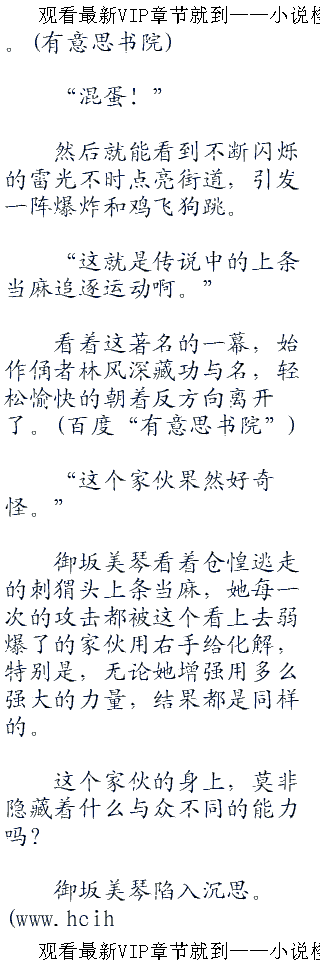 观看最新VIP章节就到——小说
。(有意思书院)
“混蛋！”
然后就能看到不断闪烁
的雷光不时点亮街道，引发
一阵爆炸和鸡飞狗跳。
“这就是传说中的上条
当麻追逐运动啊。”
看着这著名的一幕，始
作俑者林风深藏功与名，轻
松愉快的朝着反方向离开
了。(百度“有意思书院”)
“这个家伙果然好奇
怪。”
御坂美琴看着仓惶逃走
的刺猬头上条当麻，她每一
次的攻击都被这个看上去弱
爆了的家伙用右手给化解，
特别是，无论她增强用多么
强大的力量，结果都是同样
的。
这个家伙的身上，莫非
隐藏着什么与众不同的能力
吗？
御坂美琴陷入沉思。
(www.hcih
观看最新VIP章节就到——小说